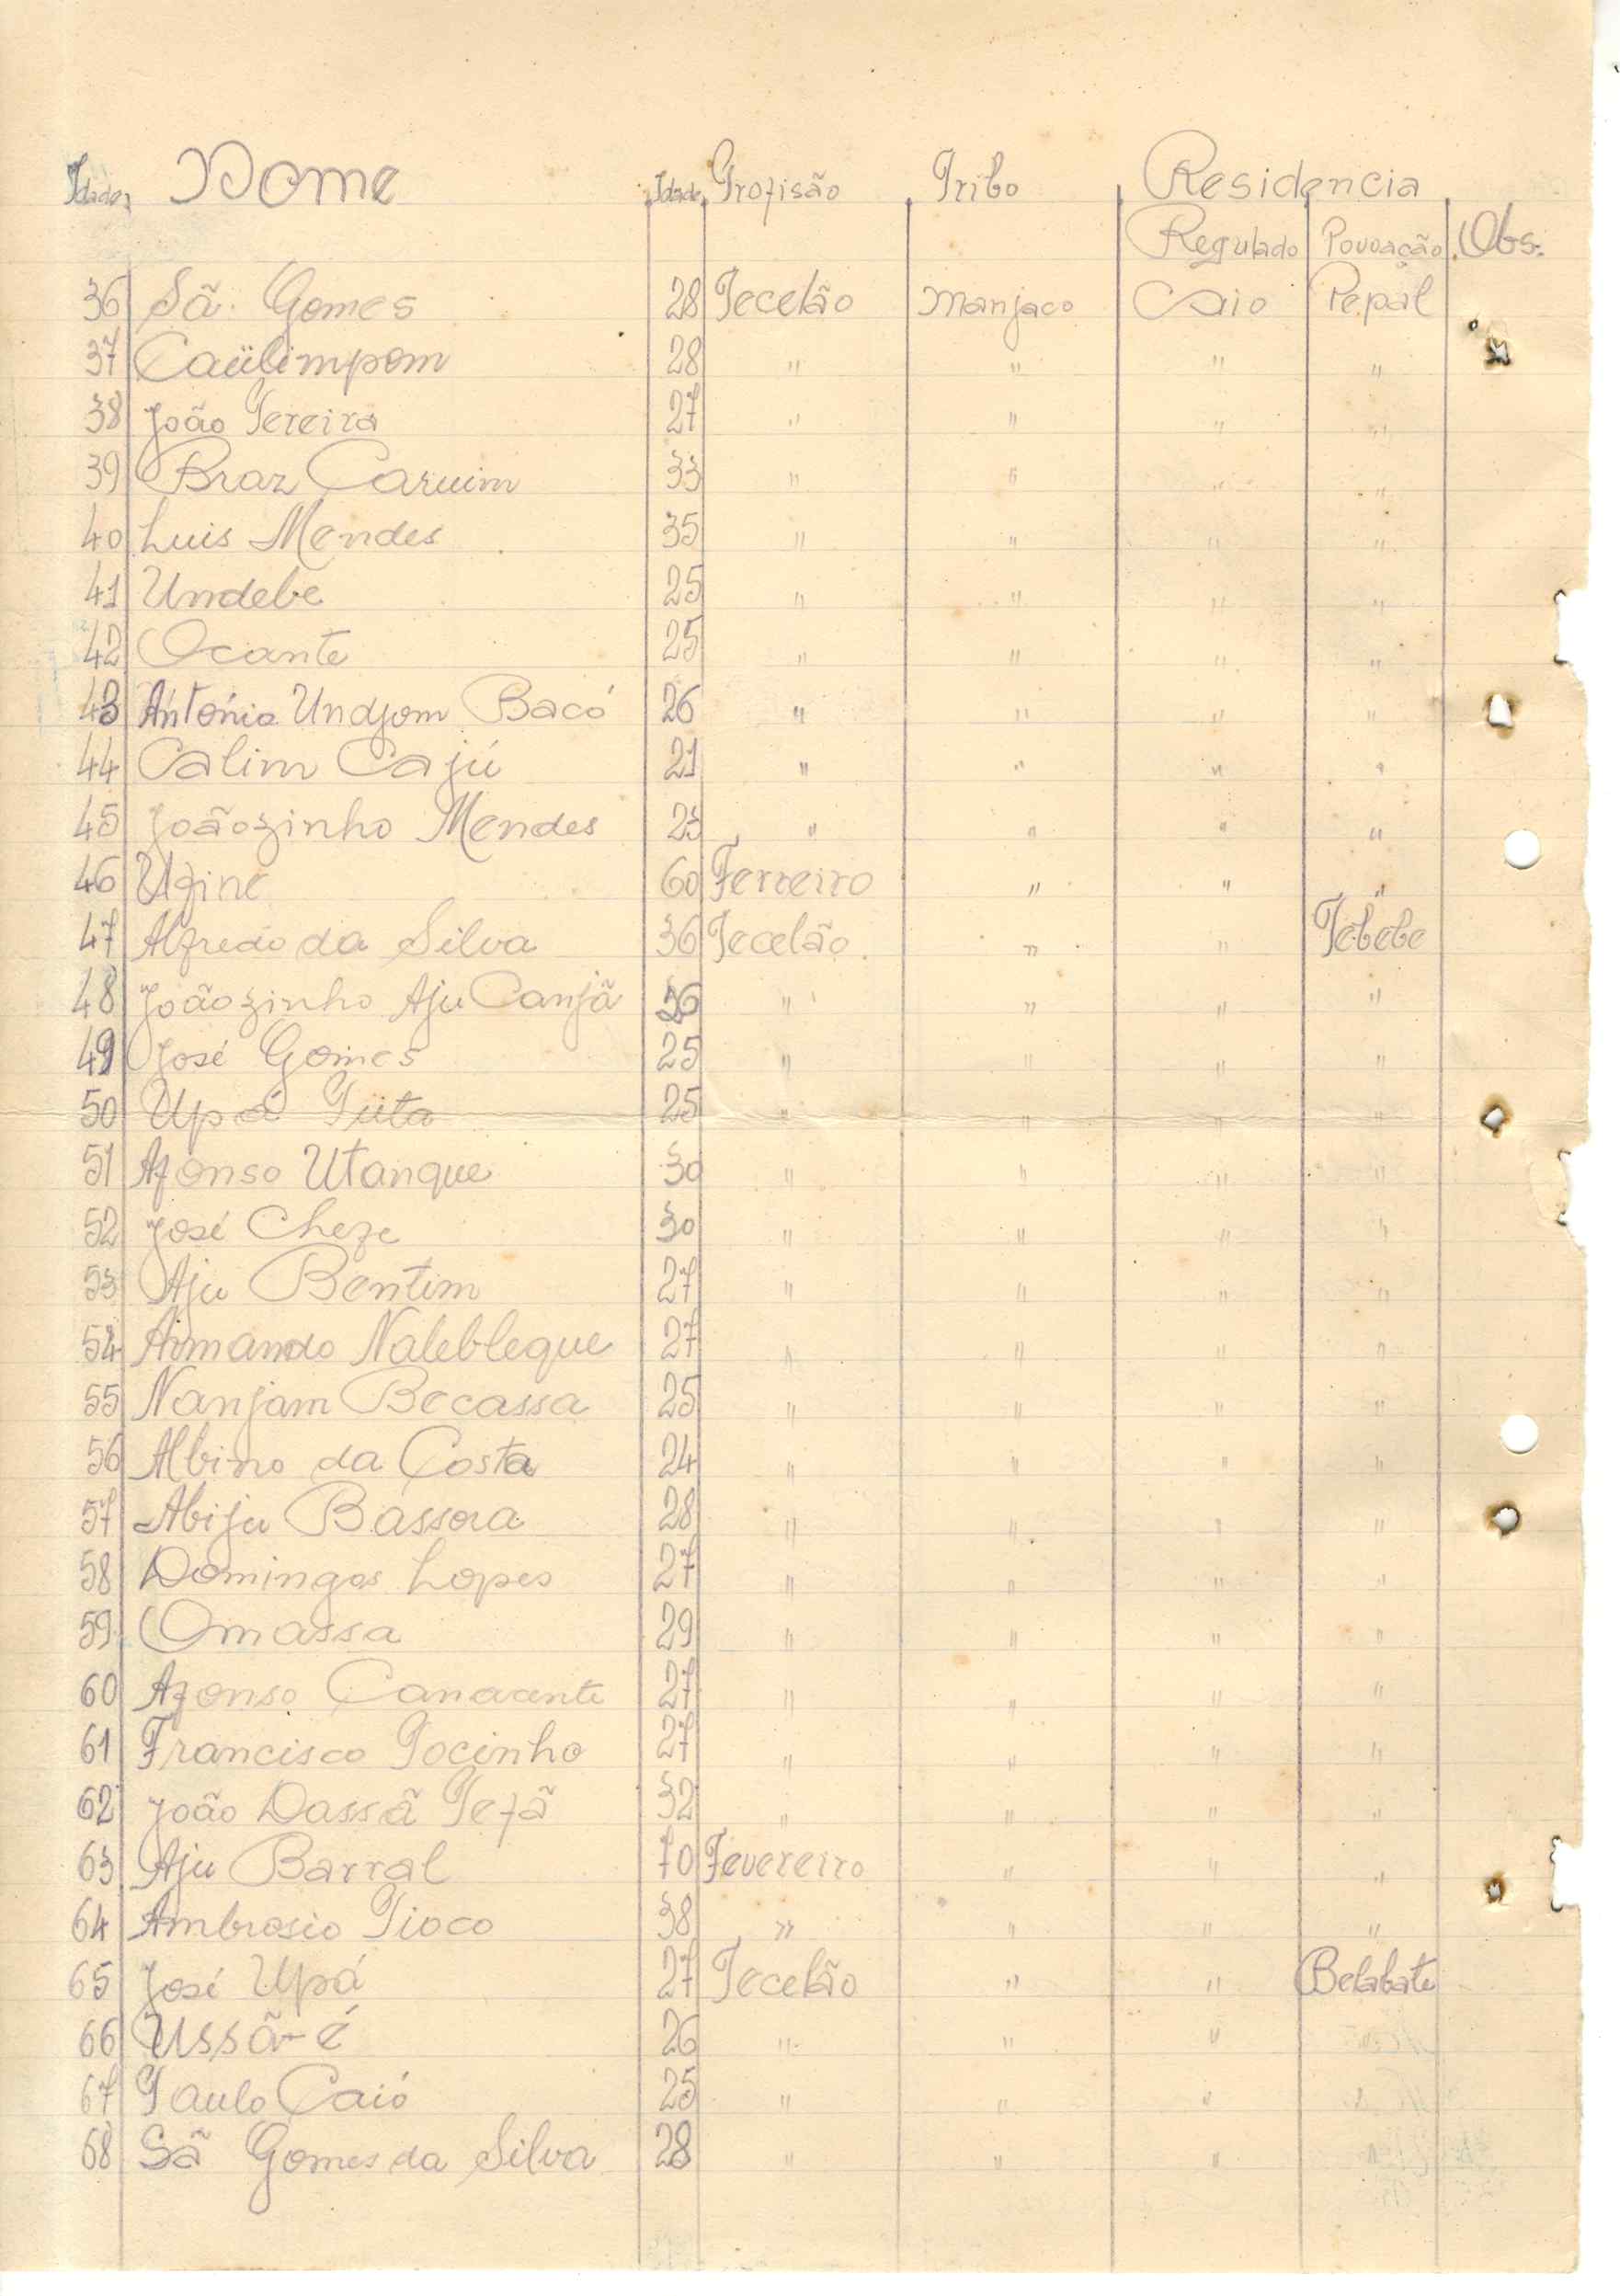 Idade Nome Idade Profisão Tribo Residencia
Regulado Povoação Obs.
36 Sã Gomes 28 Tecelão Manjaco Caio Pepal
37 Caülimpom 28 " " " "
38 João Pereira 27 " " " "
39 Braz Caruim 33 " " " "
40 Luis Mendes 35 " " " "
41 Undebe 25 " " " "
42 Ocante 25 " " " "
43 António Undjom Bacó 26 " " " "
44 Calim Cajú 21 " " " "
45 Joãozinho Mendes 23 " " " "
46 Ufiné 60 Ferreiro " " "
47 Alfredo da Silva 36 Tecelão " " Tebebe
48 Joãozinho Aju Canjã 36 " " " "
49 José Gomes 25 " " " "
50 Upá Piita 25 " " " "
51 Afonso Utanque 30 " " " "
52 José Chefe 30 " " " "
53 Aju Bentim 27 " " " "
54 Armando Nalebleque 27 " " " "
55 Nanjam Becassa 25 " " " "
56 Albino da Costa 24 " " " "
57 Abiju Bassora 28 " " " "
58 Domingos Lopes 27 " " " "
59 Omassa 29 " " " "
60 Afonso Canacante 27 " " " "
61 Francisco Pocinho 27 " " " "
62 João Dassã Pefã 32 " " " "
63 Aju Barral 70 Fevereiro " " "
64 Ambrosio Pioco 38 " " " "
65 José Upá 27 Tecelão " " Belabate
66 Ussã-é 26 " " "
67 Paulo Caió 25 " " "
68 Sã Gomes da Silva 28 " " "